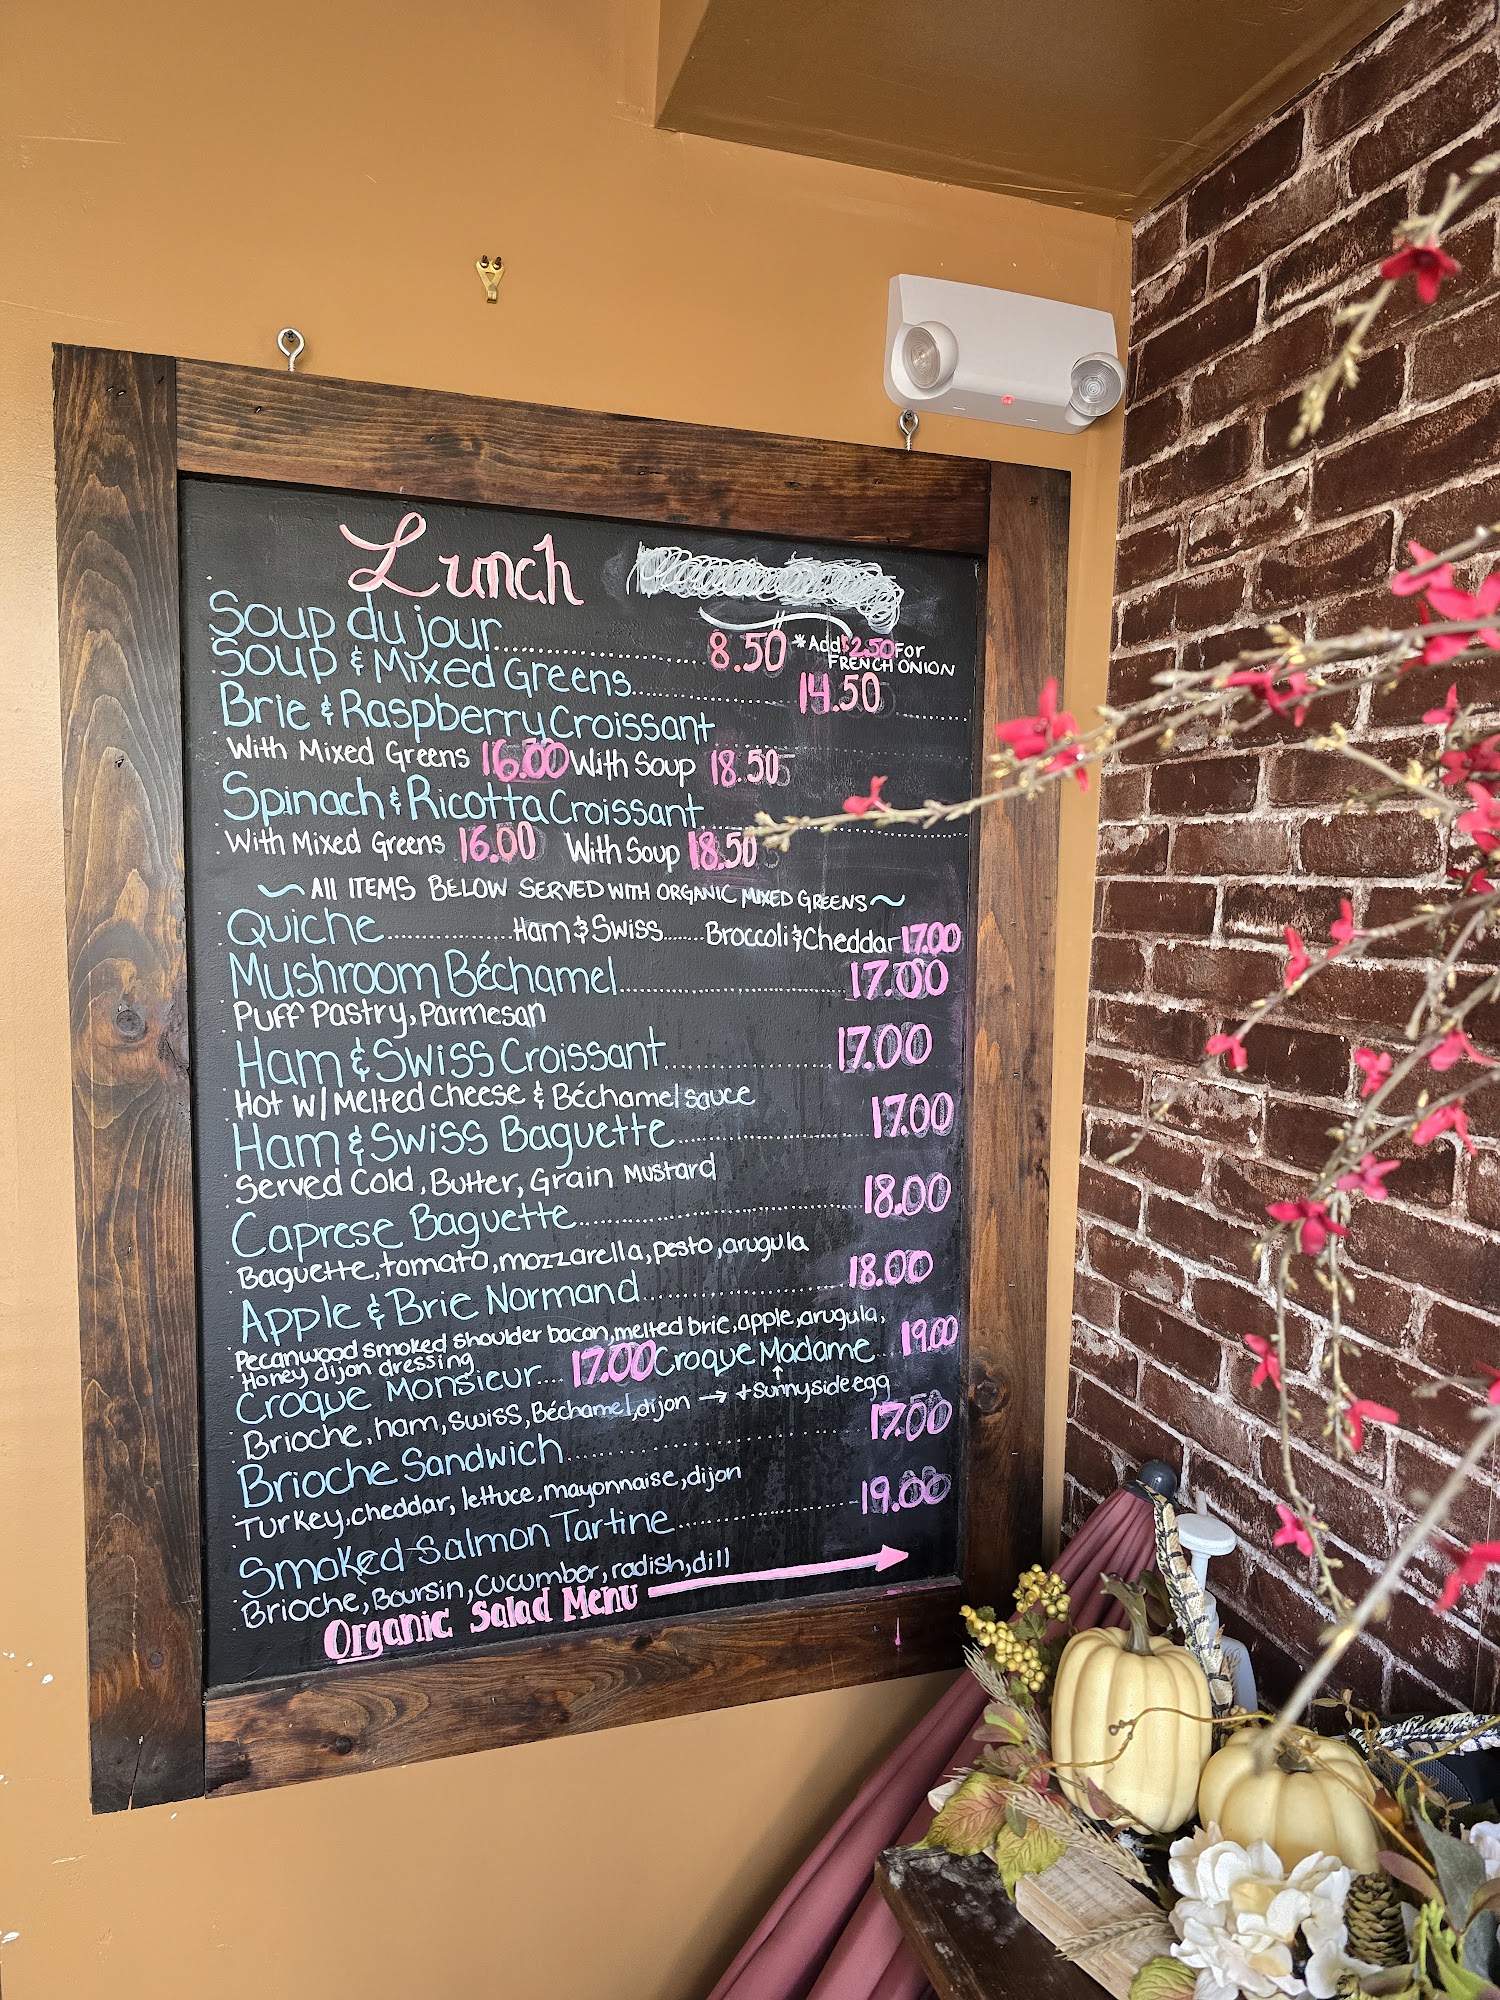 Lunch
Soup du jour 8.50 *Add $2.50 For
FRENCH ONION
Soup & Mixed Greens 14.50
Brie & Raspberry Croissant
With Mixed Greens 16.00 With Soup 18.50
Spinach & Ricotta Croissant
With Mixed Greens 16.00 With Soup 18.50
~ All ITEMS BELOW SERVED WITH ORGANIC MIXED GREENS ~
Quiche Ham & Swiss Broccoli & Cheddar 17.00
Mushroom Béchamel 17.00
Puff Pastry, Parmesan
Ham & Swiss Croissant 17.00
Hot w/ Melted Cheese & Béchamel sauce
Ham & Swiss Baguette 17.00
Served Cold, Butter, Grain Mustard
Caprese Baguette 18.00
Baguette, tomato, mozzarella, pesto, arugula
Apple & Brie Normand 18.00
Pecanwood smoked shoulder bacon, melted brie, apple, arugula,
Honey dijon dressing
Croque Monsieur.... 17.00 Croque Madame.. 19.00
Brioche, ham, swiss, Béchamel, dijon → + Sunnyside egg
Brioche Sandwich 17.00
Turkey, cheddar, lettuce, mayonnaise, dijon
Smoked Salmon Tartine 19.00
Brioche, Boursin, cucumber, radish, dill
Organic Salad Menu →